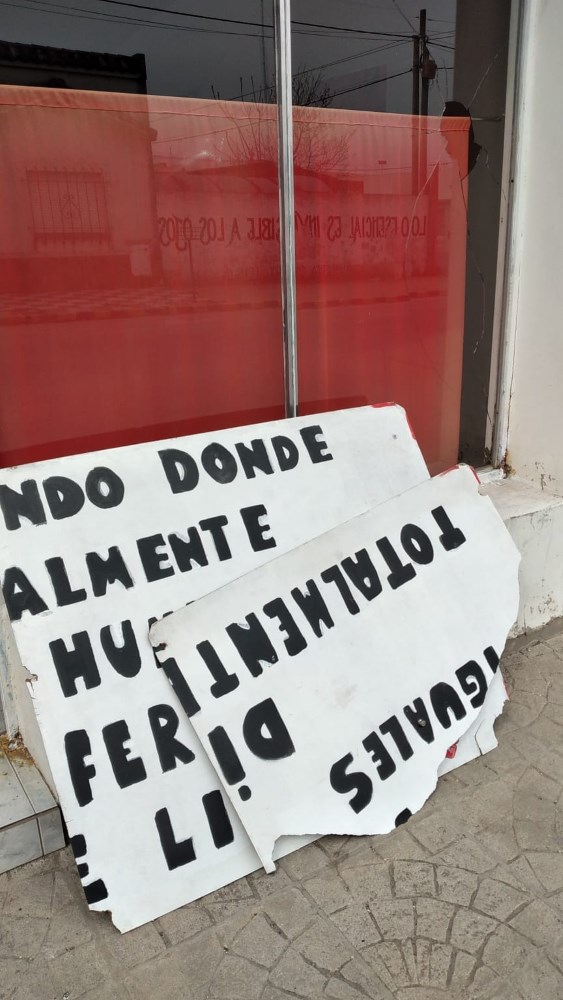 LO ESENCIAL ES INVISIBLE A LOS OJOS
NDO DONDE
ALMENTE
HU
FER
LI
E
IGUALES
DI
TOTALMENTE